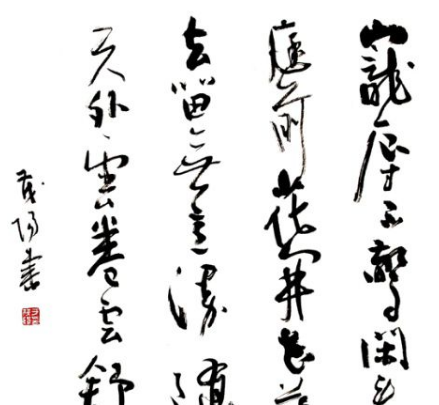 寵辱不驚閑看
庭前花开花
去留無意漫隨
天外雲卷云舒
書